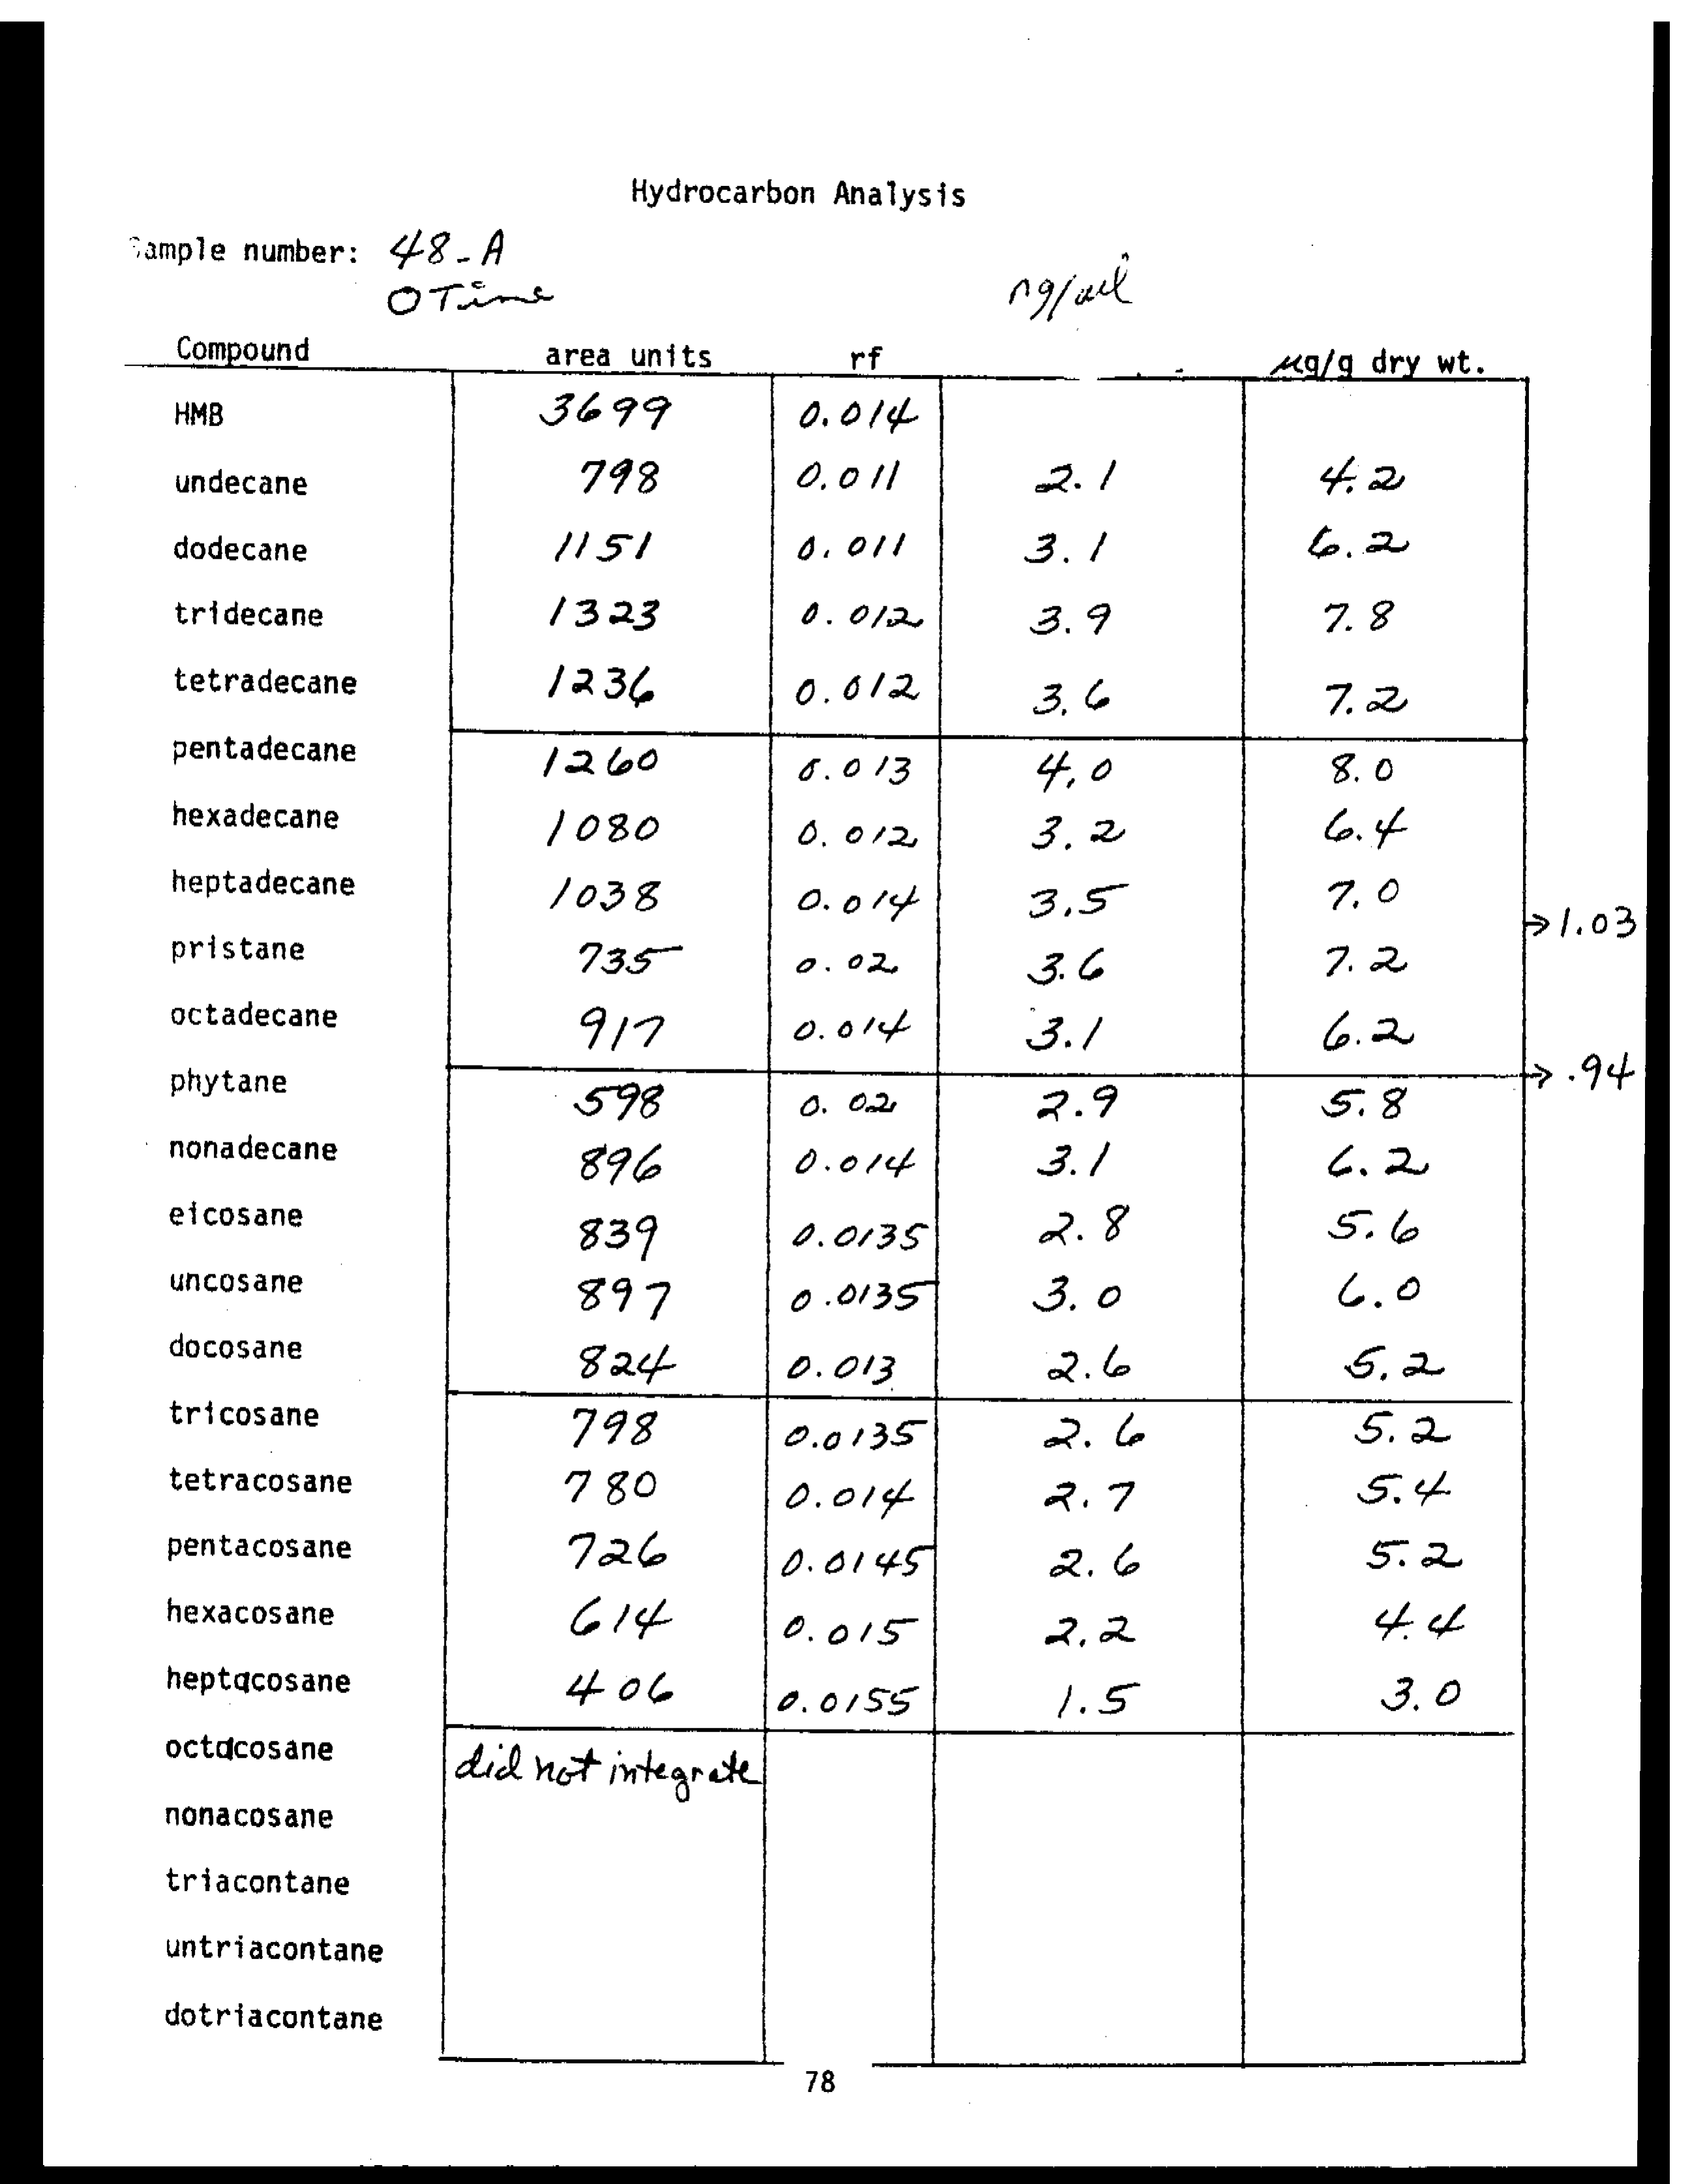 Hydrocarbon Analysis
Sample number: 48-A
0 Time
ng/µl
Compound area units rf µg/g dry wt.
HMB 3699 0.014
undecane 798 0.011 2.1 4.2
dodecane 1151 0.011 3.1 6.2
tridecane 1323 0.012 3.9 7.8
tetradecane 1236 0.012 3.6 7.2
pentadecane 1260 0.013 4.0 8.0
hexadecane 1080 0.012 3.2 6.4
heptadecane 1038 0.014 3.5 7.0
→1.03
pristane 735 0.02 3.6 7.2
octadecane 917 0.014 3.1 6.2
→ .94
phytane 598 0.02 2.9 5.8
nonadecane 896 0.014 3.1 6.2
eicosane 839 0.0135 2.8 5.6
uncosane 897 0.0135 3.0 6.0
docosane 824 0.013 2.6 5.2
tricosane 798 0.0135 2.6 5.2
tetracosane 780 0.014 2.7 5.4
pentacosane 726 0.0145 2.6 5.2
hexacosane 614 0.015 2.2 4.4
heptacosane 406 0.0155 1.5 3.0
octacosane did not integrate
nonacosane
triacontane
untriacontane
dotriacontane
78